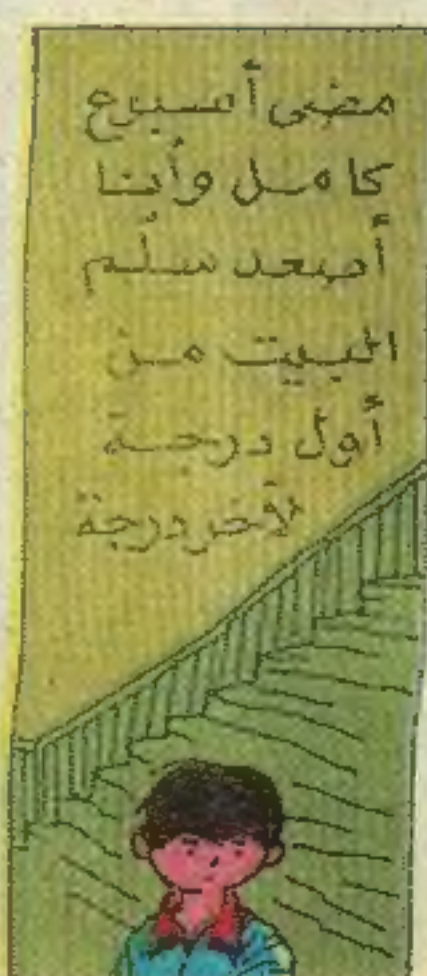 مضى أسبوع
كامل وأنا
أصعد سلّم
البيت من
أول درجة
لآخر درجة